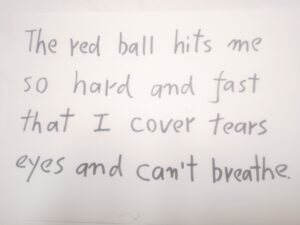 The red ball hits me
so hard and fast
that I cover tears
eyes and can't breathe.